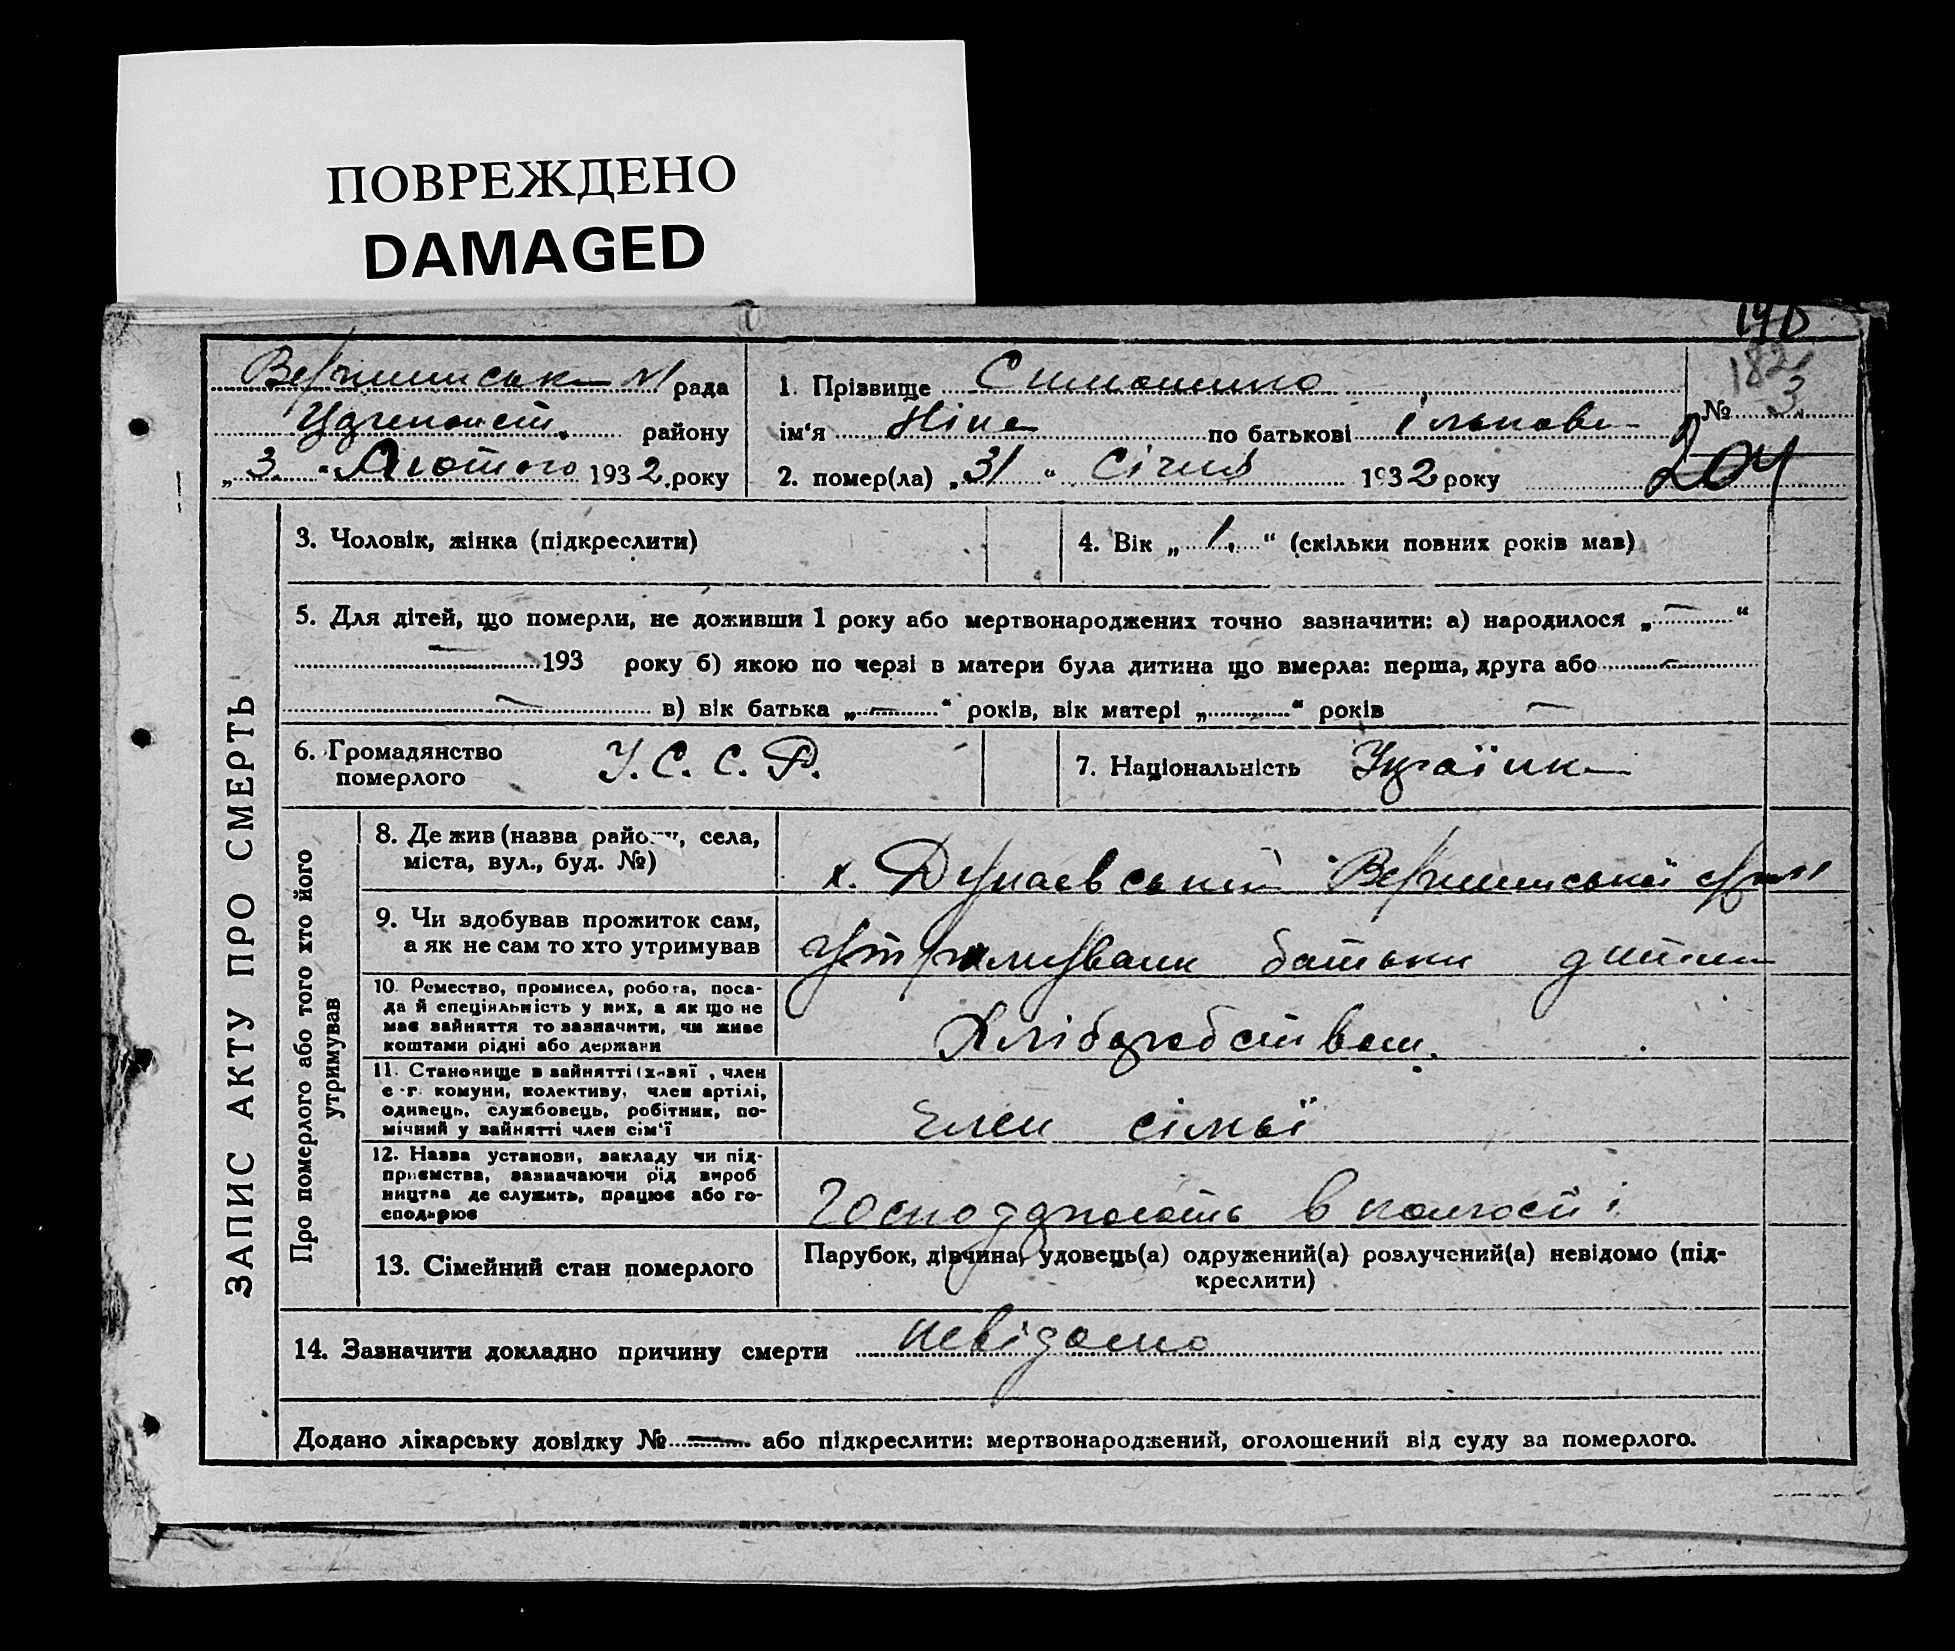 ПОВРЕЖДЕНО
DAMAGED
190
182
рада
району
„ 3 “ Лютого 1932 року
1. Прізвище Симоненко
ім‘я Ніна по батькові
2. помер(ла) „ 31 “ Січня 1932 року
№ 3
204
ЗАПИС АКТУ ПРО СМЕРТЬ
3. Чоловік, жінка (підкреслити)
4. Вік „ 1. “ (скільки повних років мав)
5. Для дітей, що померли, не доживши 1 року або мертвонароджених точно зазначити: а) народилося „ — “
— 193 року б) якою по черзі в матери була дитина що вмерла: перша, друга або —
— в) вік батька „ — “ років, вік матері „ “ років —
6. Громадянство
померлого
У. С. С. Р.
7. Національність Українка
Про померлого або того хто його
утримував
8. Де жив (назва району, села,
міста, вул., буд. №)
х. Дунаєвський
9. Чи здобував прожиток сам,
а як не сам то хто утримував
утримували батьки дитини
10. Ремество, промисел, робота, поса-
да й спеціяльність у них, а як що не
має зайняття то зазначити, чи живе
коштами рідні або держави
Хліборобством.
11. Становище в зайнятті (хазяї, член
с.-г. комуни, колективу, член артілі,
одинець, службовець, робітник, по-
мічний у зайнятті член сім‘ї
Член сімьї
12. Назва установи, закладу чи під-
приємства, зазначаючи рід вироб
ництва де служить, працює або го-
сподарює
Господарюють в колгоспі
13. Сімейний стан померлого
Парубок, дівчина, удовець(а) одружений(а) розлучений(а) невідомо (під-
креслити)
14. Зазначити докладно причину смерти невідомо
Додано лікарську довідку № — або підкреслити: мертвонароджений, оголошений від суду за померлого.